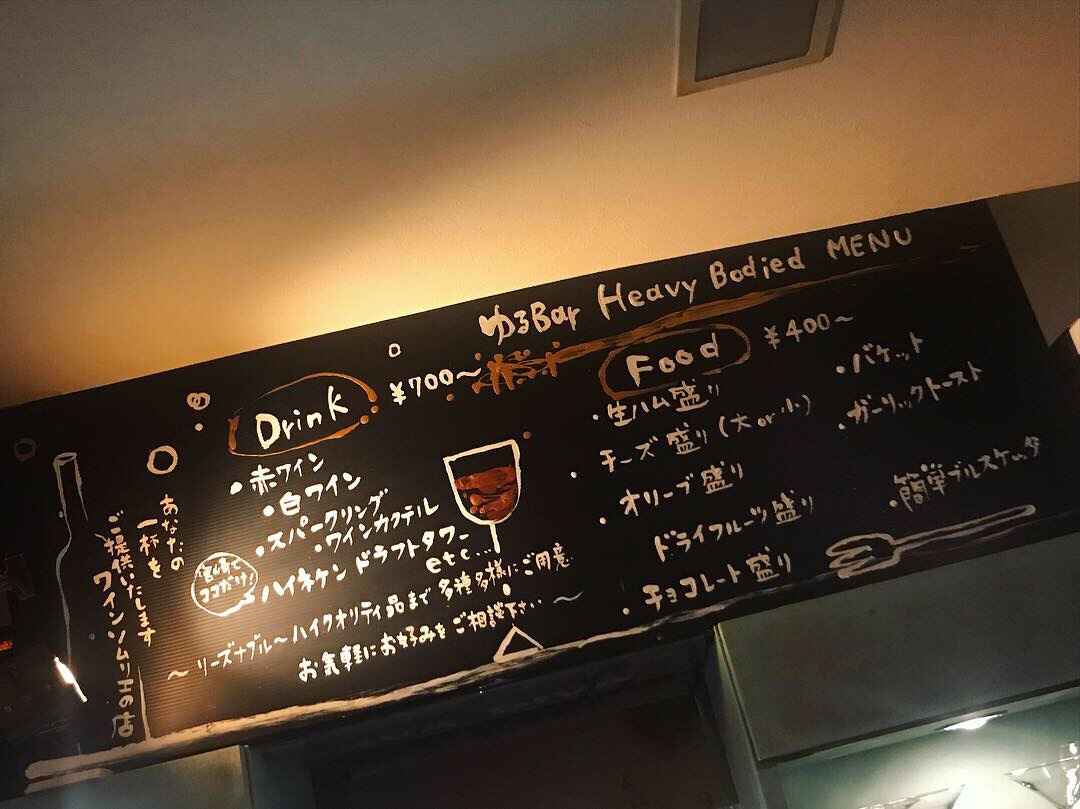 ゆるBar Heavy Bodied MENU
Drink ¥700〜
・赤ワイン
・白ワイン
・スパークリング
・ワインカクテル
宮崎で
ココだけ!
ハイネケンドラフトタワー
etc...
〜リーズナブル〜ハイクオリティ品まで多種多様にご用意
お気軽にお好みをご相談下さい〜
あなたの
一杯を
ご提供いたします
ワインソムリエの店
Food ¥400〜
・生ハム盛り
・チーズ盛り(大or小)
・オリーブ盛り
ドライフルーツ盛り
・チョコレート盛り
・バケット
・ガーリックトースト
・簡単ブルスケッタ